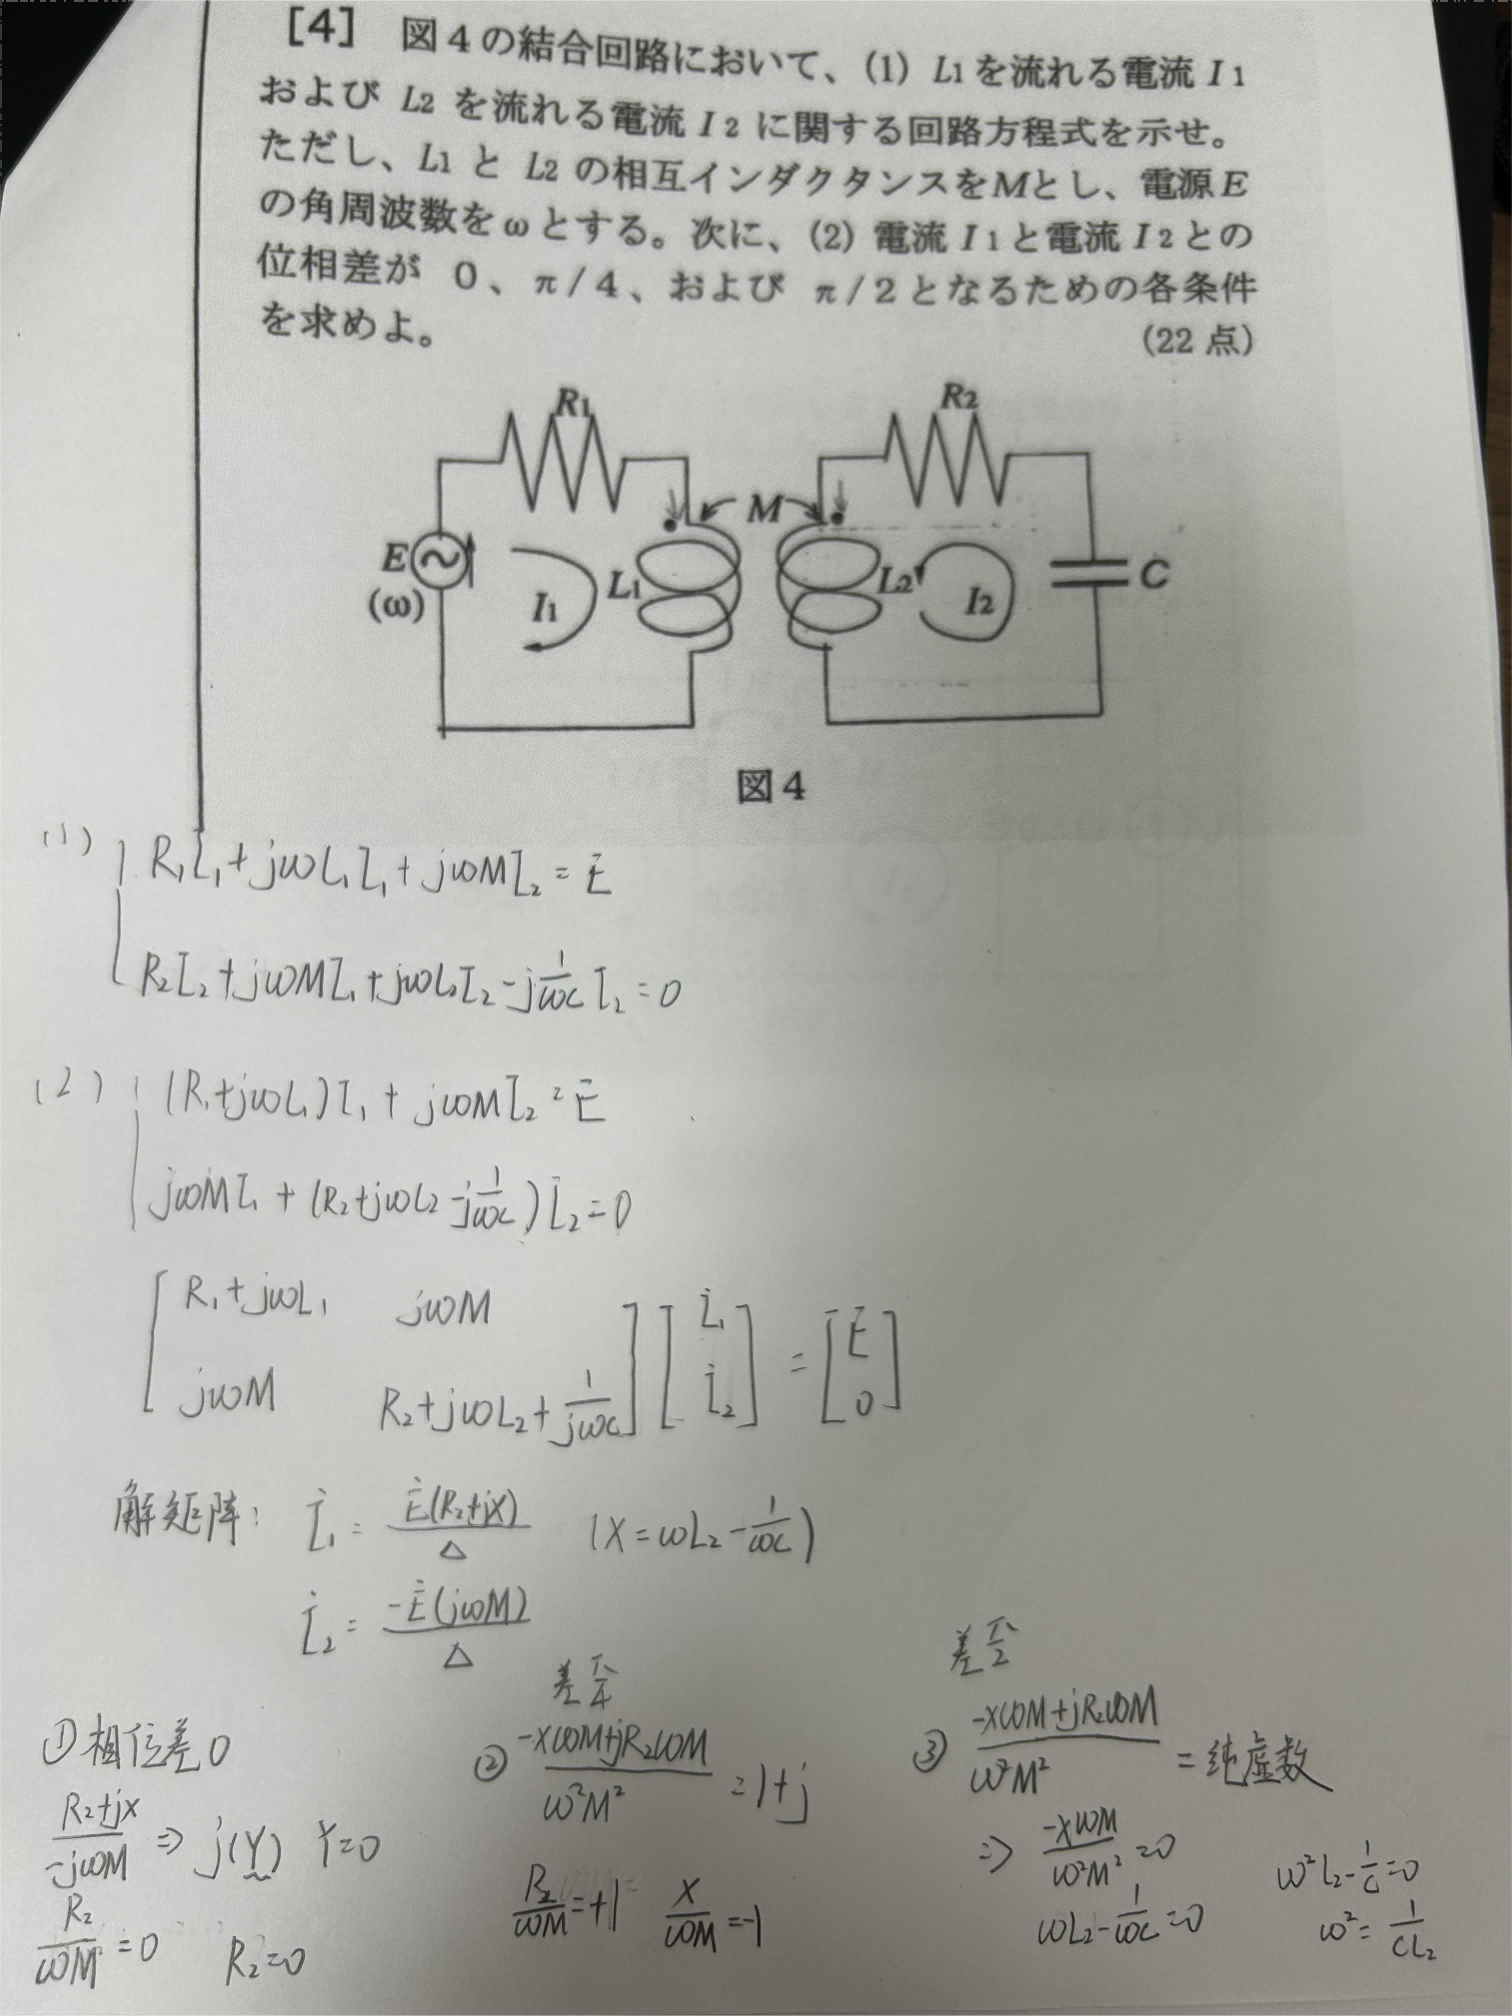 [4] 図4の結合回路において、(1) L1を流れる電流I1
および L2 を流れる電流I2に関する回路方程式を示せ。
ただし、L1 と L2 の相互インダクタンスをMとし、電源E
の角周波数をωとする。次に、(2) 電流I1と電流I2との
位相差が 0、π/4、および π/2となるための各条件
を求めよ。 (22点)
R1
R2
M
E
(ω)
I1
L1
L2
I2
C
図4
(1) R₁İ₁+jωL₁İ₁+jωMİ₂=Ė
R₂İ₂+jωMİ₁+jωL₂İ₂-j1/ωC İ₂=0
(2) (R₁+jωL₁)İ₁+jωMİ₂=Ė
jωMİ₁+(R₂+jωL₂-j1/ωC)İ₂=0
[R₁+jωL₁ jωM
jωM R₂+jωL₂+1/jωC] [İ₁ İ₂] = [Ė 0]
解矩阵: İ₁=Ė(R₂+jX)/Δ (X=ωL₂-1/ωC)
İ₂=-Ė(jωM)/Δ
①相位差0
R₂+jX/-jωM ⇒ j(Y) Y=0
R₂/ωM=0 R₂=0
差π/4
② -XωM+jR₂ωM/ω²M² =1+j
R₂/ωM=+1 X/ωM=-1
差π/2
③ -XωM+jR₂ωM/ω²M² =纯虚数
⇒ -XωM/ω²M²=0
ωL₂-1/ωC=0
ω²L₂-1/C=0
ω²=1/CL₂